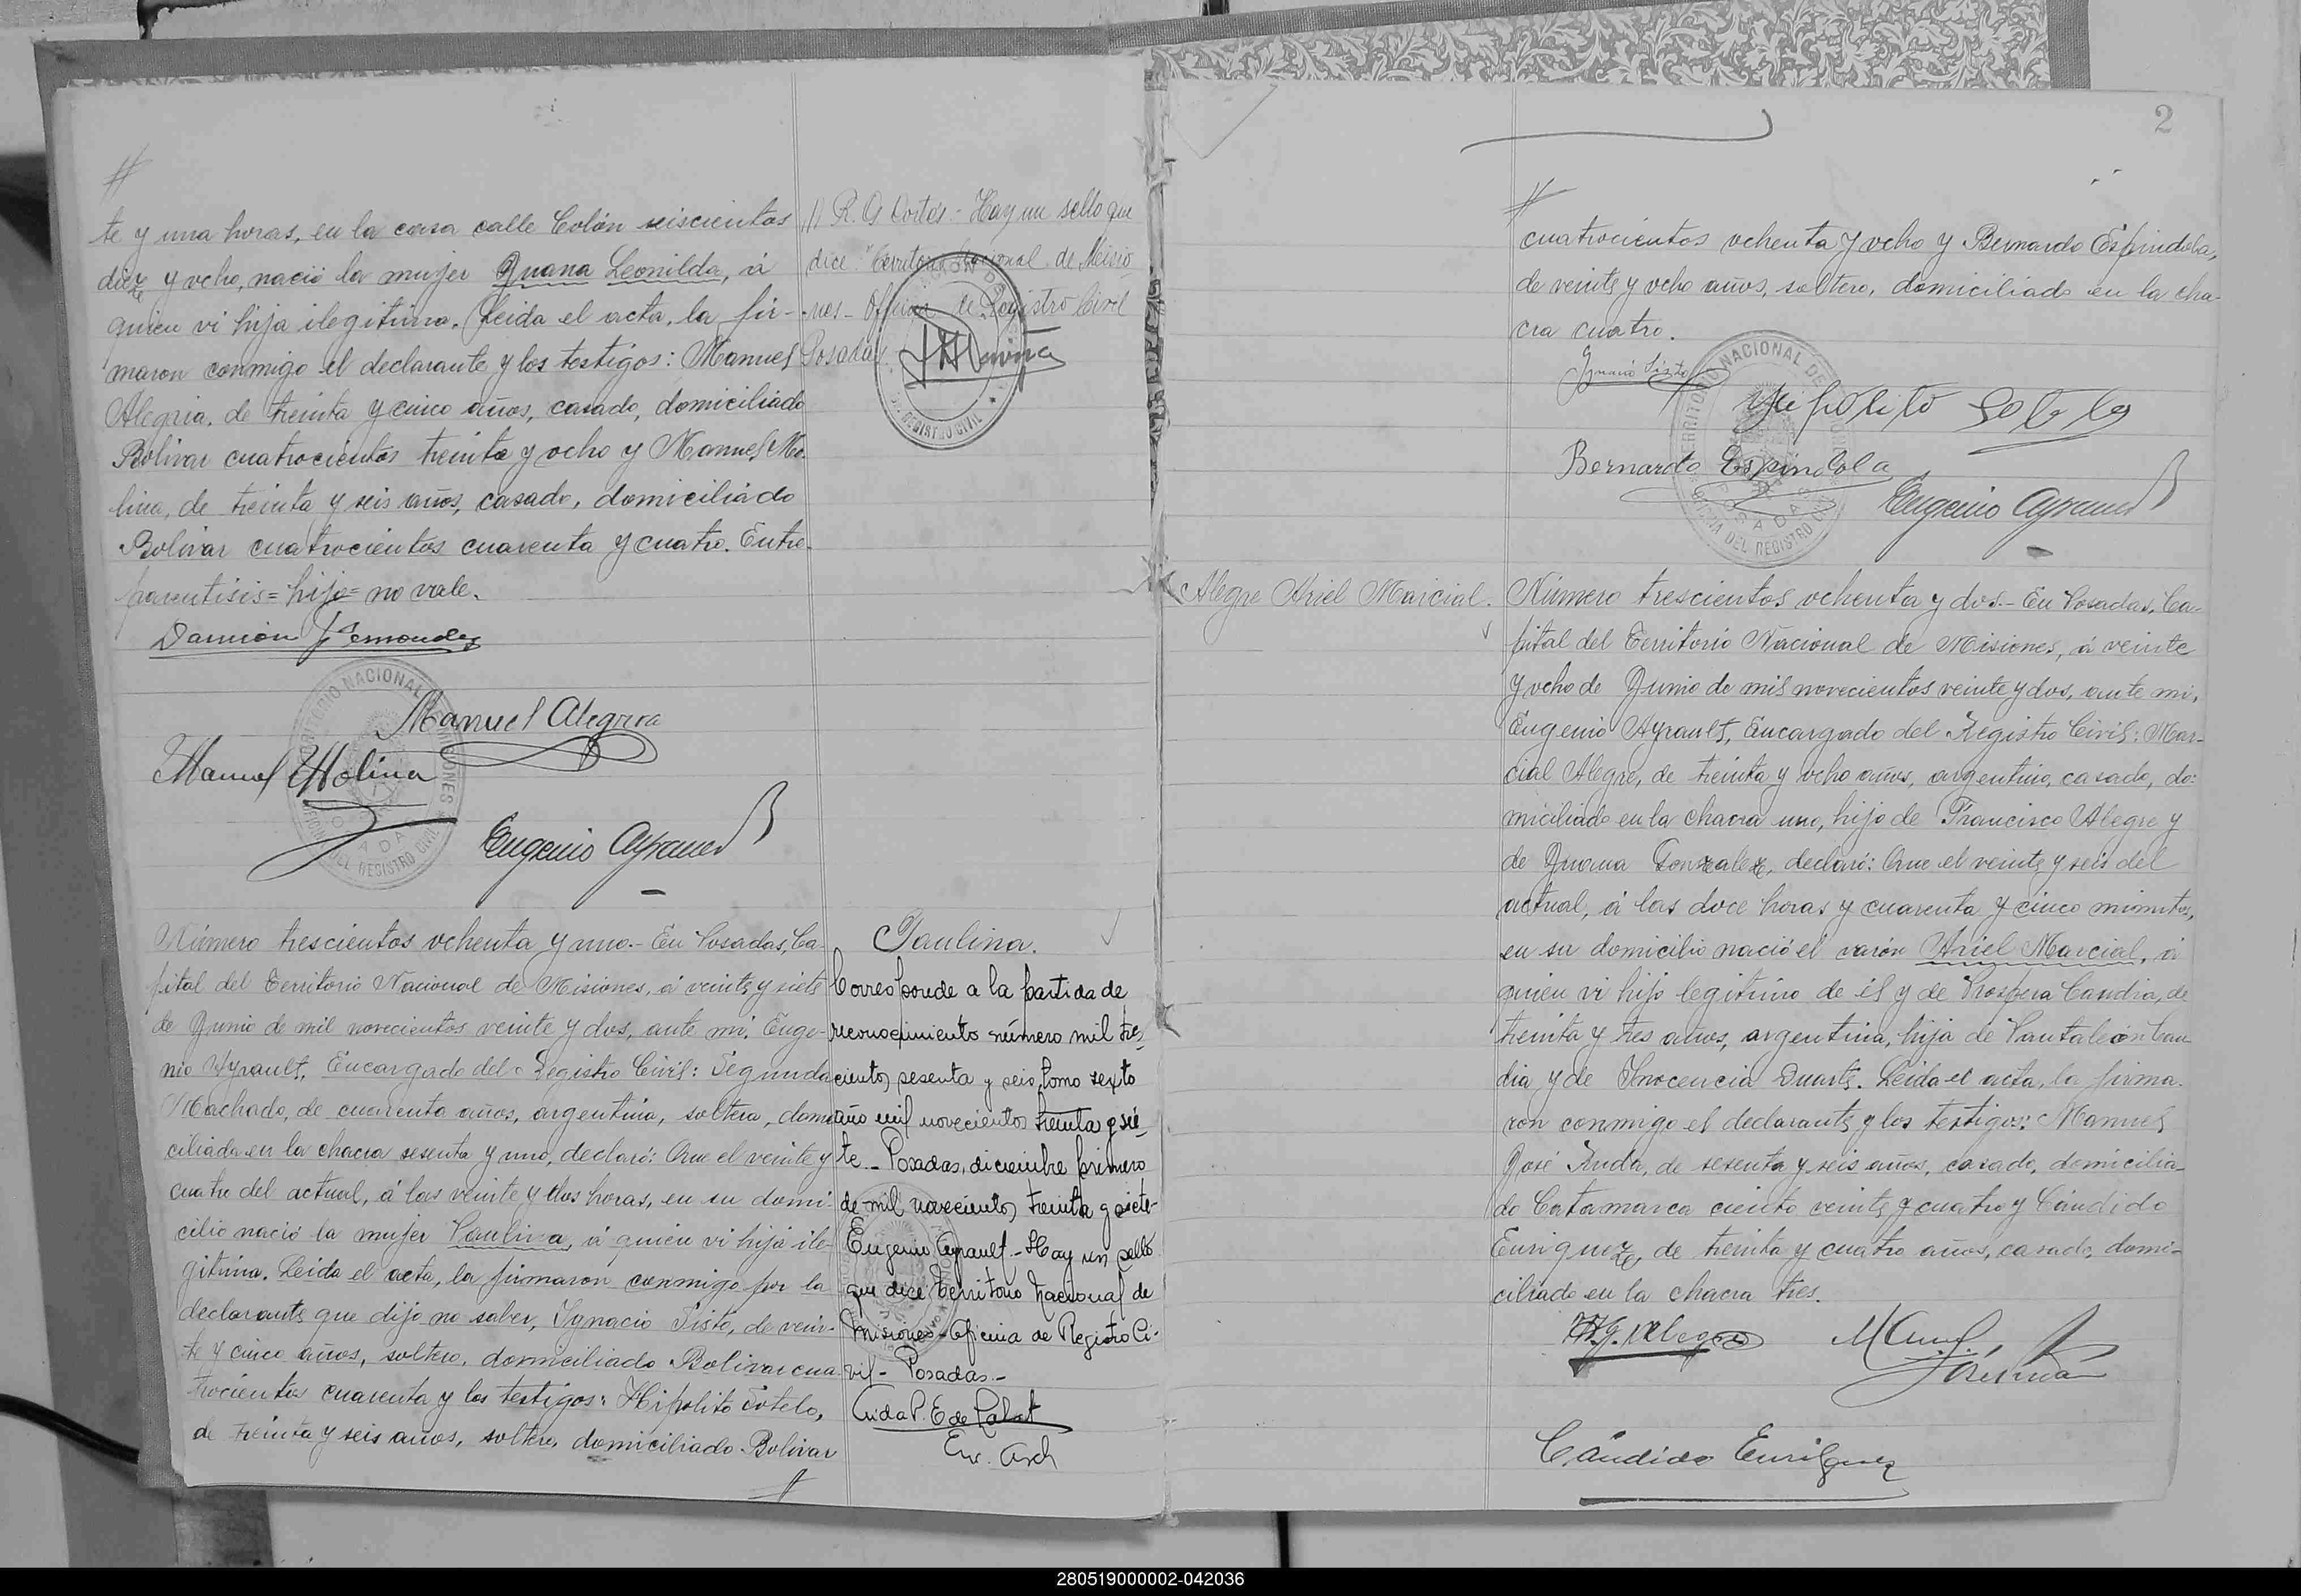 te y una horas, en la casa calle Colón seiscientos
diez y ocho, nació la mujer Juana Leonilda, á
quien vi hija ilegitima. Leida el acta, la fir-
maron conmigo el declarante y los testigos: Manuel
Alegria, de treinta y cinco años, casado, domiciliado
Bolivar cuatrocientos treinta y ocho y Manuel Mo-
lina, de treinta y seis años, casado, domiciliado
Bolivar cuatrocientos cuarenta y cuatro. Entre-
parentisis=hijo=no vale.
Manuel Alegria
Manuel Molina
Eugenio Ayrault
// R. G. Cortés - Hay un sello que
dice "Territorio Nacional de Misio-
nes - Oficina de Registro Civil
Posadas
Número trescientos ochenta y uno.- En Posadas, Ca-
pital del Territorio Nacional de Misiones, á veinte y siete
de Junio de mil novecientos veinte y dos, ante mi, Euge-
nio Ayrault, Encargado del Registro Civil: Segunda
Machado, de cuarenta años, argentina, soltera, domi-
ciliada en la chacra sesenta y uno, declaró: Que el veinte y
cuatro del actual, á las veinte y dos horas, en su domi-
cilio nació la mujer Paulina, á quien vi hija ile-
gitima. Leida el acta, la firmaron conmigo por la
declarante que dijo no saber, Ygnacio Sisto, de vein-
te y cinco años, soltero, domiciliado Bolivar cua-
trocientos cuarenta y los testigos: Hipolito Sotelo,
de treinta y seis años, soltero, domiciliado Bolivar
Paulina.
Corresponde a la partida de
reconocimiento número mil tres-
cientos sesenta y seis, tomo sexto
año mil novecientos treinta y sie-
te.- Posadas, diciembre primero
de mil novecientos treinta y siete-
Eugenio Ayrault.- Hay un sello
que dice Territorio Nacional de
Misiones - Oficina de Registro Ci-
vil - Posadas.-
Enc. Arch
2
cuatrocientos ochenta y ocho y Bernardo Espindola,
de veinte y ocho años, soltero, domiciliado en la cha-
cra cuatro.
Ygnacio Sisto
Hipolito Sotelo
Bernardo Espindola
Eugenio Ayrault
Alegre Ariel Marcial.
Número trescientos ochenta y dos.- En Posadas, Ca-
pital del Territorio Nacional de Misiones, á veinte
y ocho de Junio de mil novecientos veinte y dos, ante mi,
Eugenio Ayrault, Encargado del Registro Civil: Mar-
cial Alegre, de treinta y ocho años, argentino, casado, do-
miciliado en la chacra uno, hijo de Francisco Alegre y
de Juana Gonzalez, declaró: Que el veinte y seis del
actual, á las doce horas y cuarenta y cinco minutos,
en su domicilio nació el varón Ariel Marcial, á
quien vi hijo legitimo de él y de Prospera Candia, de
treinta y tres años, argentina, hija de Pantaleón Can-
dia y de Ynocencia Duarte. Leida el acta, la firma-
ron conmigo el declarante y los testigos: Manuel
José Ruda, de sesenta y seis años, casado, domicilia-
do Catamarca ciento veinte y cuatro y Cándido
Enriquez, de treinta y cuatro años, casado, domi-
ciliado en la chacra tres.
Cándido Enriquez
280519000002-042036